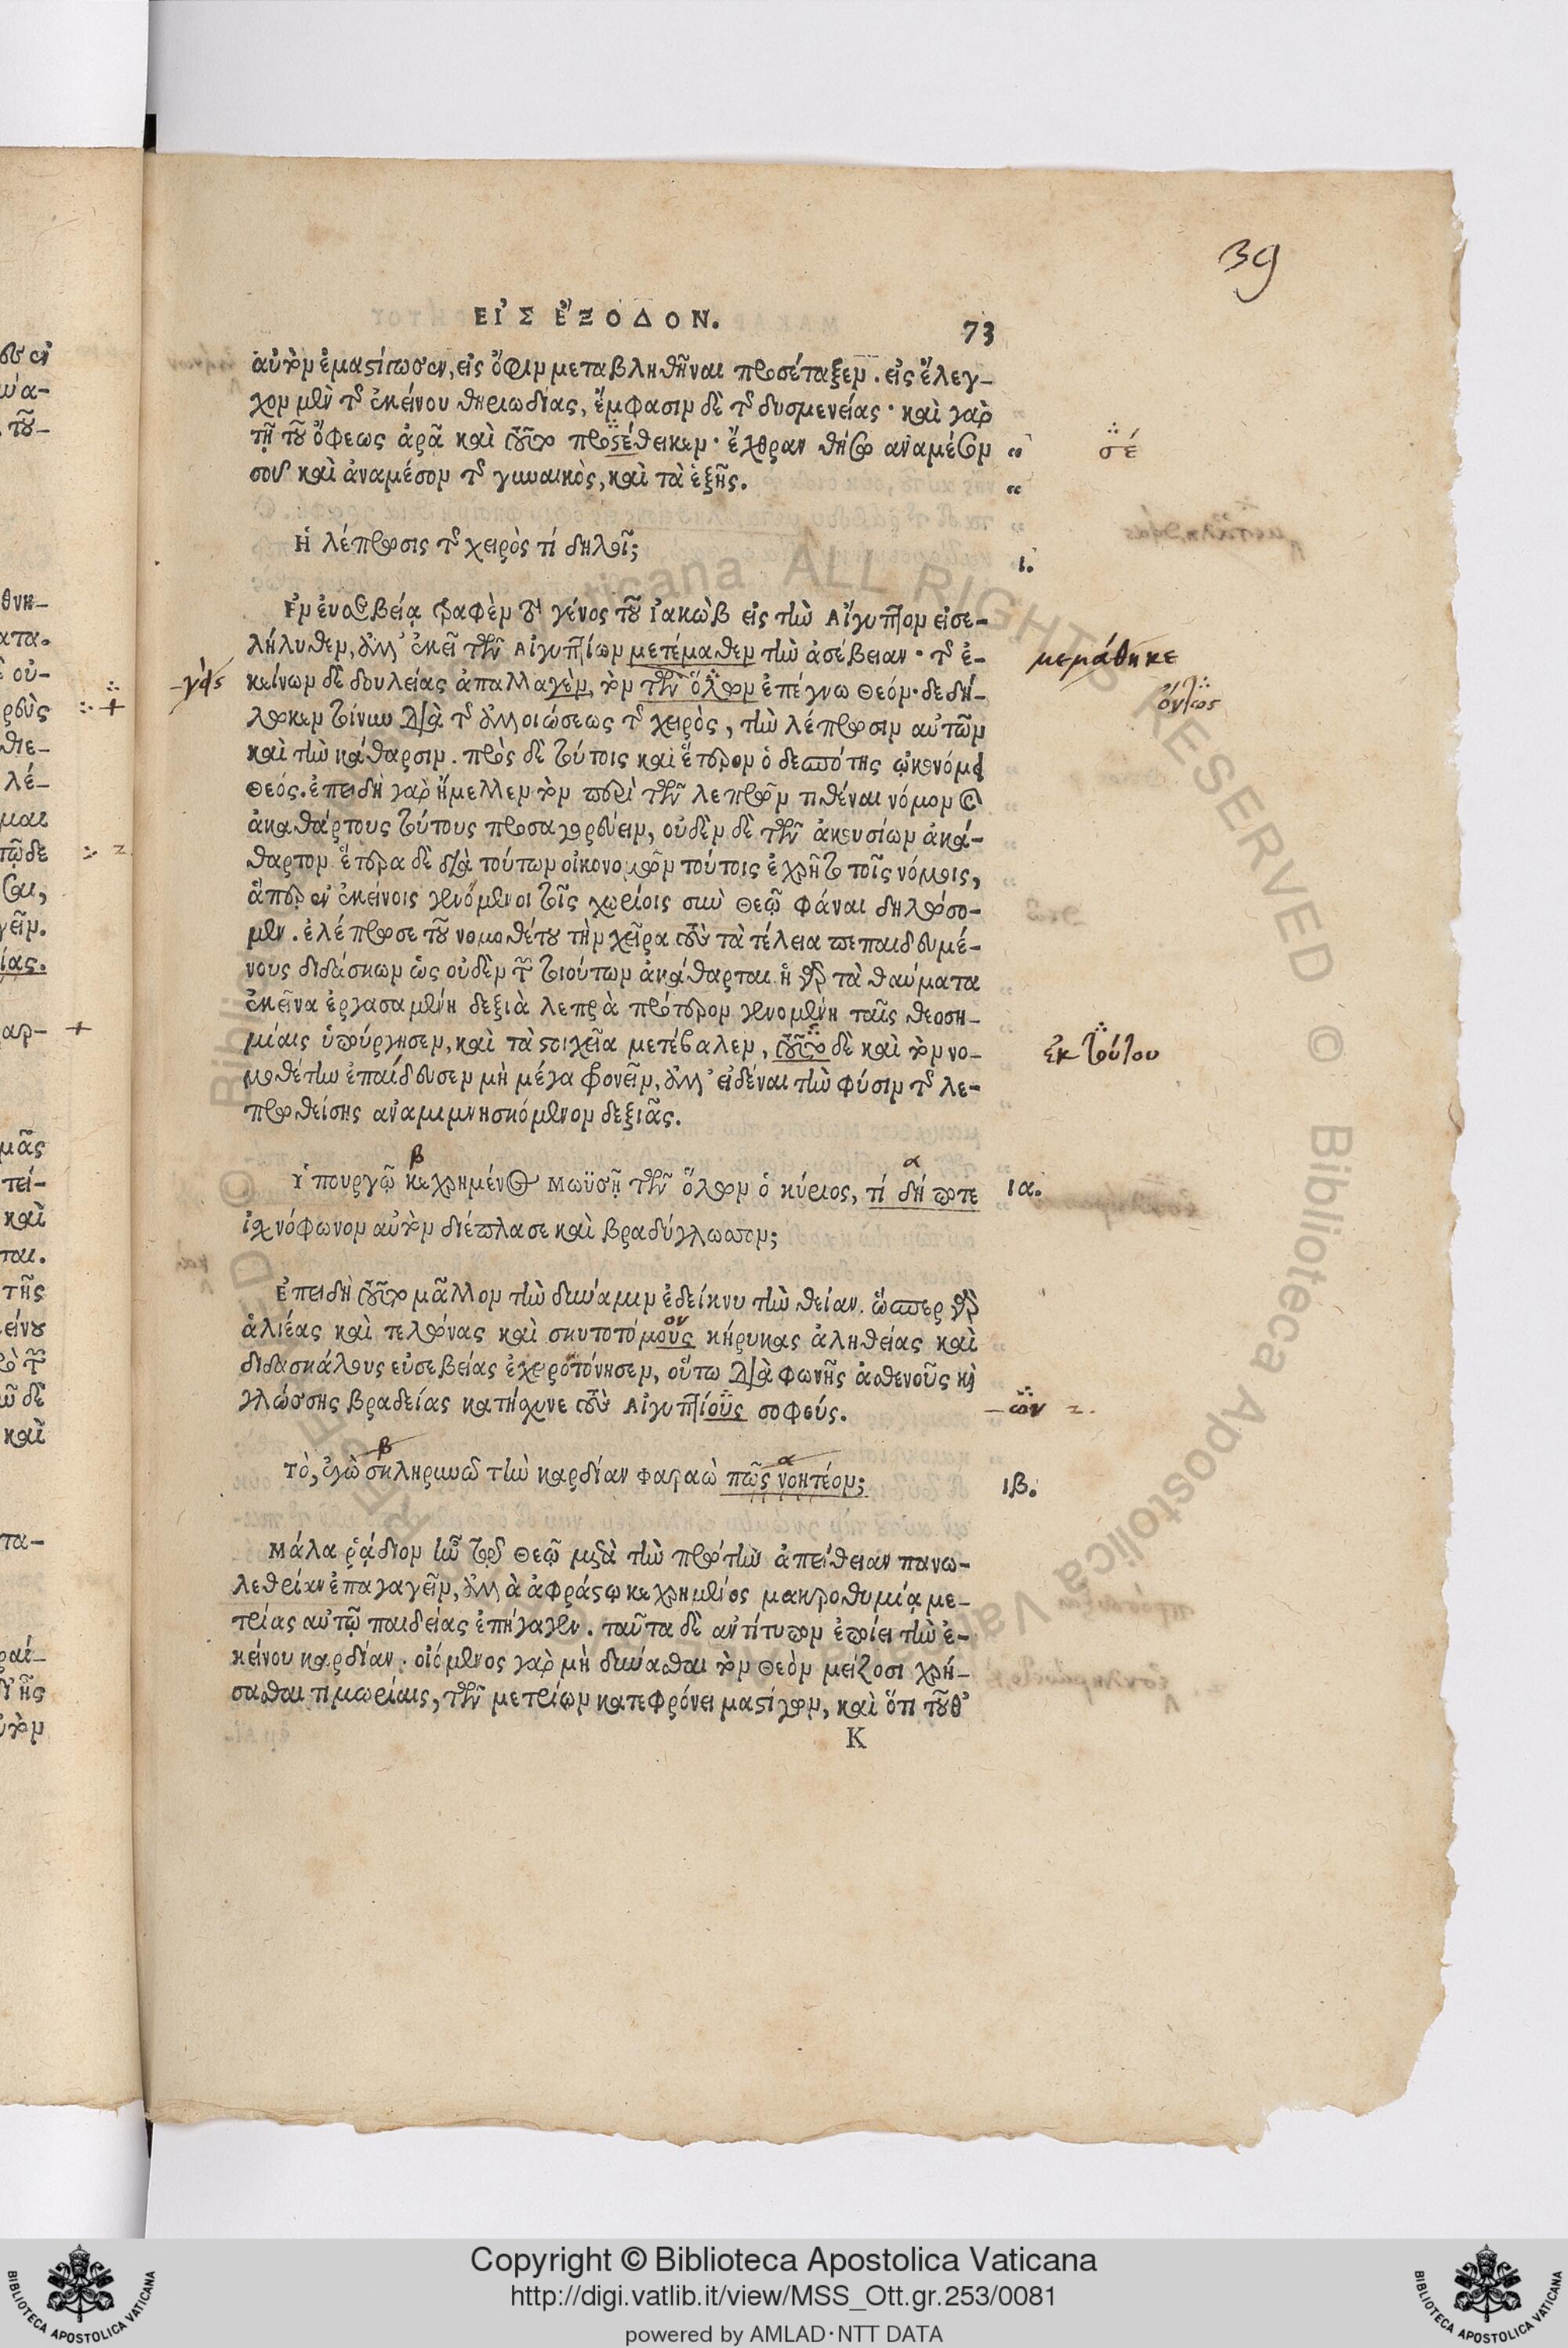 39
ΕἸΣ ἜΞΟΔΟΝ.
73
αὐτὸν ἐμαστίγωσεν, εἰς ὄφιν μεταβληθῆναι προσέταξεν. εἰς ἔλεγ-
χον μὲν τῆς ἐκείνου θηριωδίας, ἔμφασιν δὲ τῆς δυσμενείας· καὶ γὰρ
τῇ τοῦ ὄφεως ἀρᾷ καὶ τοῦτο προστέθεικεν· ἔχθραν θήσω ἀναμέσον
σέ
σου καὶ ἀναμέσον τῆς γυναικὸς, καὶ τὰ ἑξῆς.
Ἡ λέπρωσις τῆς χειρὸς τί δηλοῖ;
ι.
Ἐν εὐσεβείᾳ τραφὲν τὸ γένος τοῦ Ἰακὼβ εἰς τὴν Αἴγυπτον εἰσε-
λήλυθεν, ἀλλ' ἐκεῖ τῶν Αἰγυπτίων μετέμαθεν τὴν ἀσέβειαν· τῆς ἐ-
μεμάθηκε
-γὰς
κείνων δὲ δουλείας ἀπαλλαγὲν, τὸν τῶν ὅλων ἐπέγνω Θεόν· δεδή-
ὄντως
λωκεν τοίνυν διὰ τῆς ἀλλοιώσεως τῆς χειρὸς, τὴν λέπρωσιν αὐτῶν
καὶ τὴν κάθαρσιν. πρὸς δὲ τούτοις καὶ ἕτερον ὁ δεσπότης ᾠκονόμει
Θεός. ἐπειδὴ γὰρ ἤμελλεν τὸν περὶ τῶν λεπρῶν τιθέναι νόμον καὶ
ἀκαθάρτους τούτους προσαγορεύειν, οὐδὲν δὲ τῶν ἀκουσίων ἀκά-
θαρτον ἕτερα δὲ διὰ τούτων οἰκονομῶν τούτοις ἐχρῆτο τοῖς νόμοις,
ἅπερ ἐν ἐκείνοις γενόμενοι τοῖς χωρίοις σὺν Θεῷ φάναι δηλώσο-
μεν. ἐλέπρωσε τοῦ νομοθέτου τὴν χεῖρα τοὺς τὰ τέλεια πεπαιδευμέ-
νους διδάσκων ὡς οὐδὲν τῶν τοιούτων ἀκάθαρται. ἡ γὰρ τὰ θαύματα
ἐκεῖνα ἐργασαμένη δεξιὰ λεπρὰ πρότερον γενομένη ταῖς θεοση-
μίαις ὑπούργησεν, καὶ τὰ στοιχεῖα μετέβαλεν, τοῦτο δὲ καὶ τὸν νο-
ἐκ τούτου
μοθέτην ἐπαίδευσεν μὴ μέγα φρονεῖν, ἀλλ' εἰδέναι τὴν φύσιν τῆς λε-
πρωθείσης ἀναμιμνησκόμενον δεξιᾶς.
β α
Ὑπουργῷ κεχρημένος Μωϋσῇ τῶν ὅλων ὁ κύριος, τί δή ποτε
ια.
ἰσχνόφωνον αὐτὸν διέπλασε καὶ βραδύγλωσσον;
Ἐπειδὴ τοῦτο μᾶλλον τὴν δύναμιν ἐδείκνυ τὴν θείαν. ὥσπερ γὰρ
ἁλιέας καὶ τελώνας καὶ σκυτοτόμους κήρυκας ἀληθείας καὶ
διδασκάλους εὐσεβείας ἐχειροτόνησεν, οὕτω διὰ φωνῆς ἀσθενοῦς καὶ
γλώσσης βραδείας κατῄσχυνε τοὺς Αἰγυπτίους σοφούς.
-ων
β α
Τὸ, ἐγὼ σκληρυνῶ τὴν καρδίαν Φαραὼ πῶς νοητέον;
ιβ.
Μάλα ῥᾴδιον ἦν τῷ Θεῷ μετὰ τὴν πρώτην ἀπείθειαν πανω-
λεθρίαν ἐπαγαγεῖν, ἀλλὰ ἀφράστῳ κεχρημένος μακροθυμίᾳ με-
τρίας αὐτῷ παιδείας ἐπήγαγεν. ταῦτα δὲ ἀντίτυπον ἐποίει τὴν ἐ-
κείνου καρδίαν. οἰόμενος γὰρ μὴ δύνασθαι τὸν Θεὸν μείζοσι χρή-
σασθαι τιμωρίαις, τῶν μετρίων κατεφρόνει μαστίγων, καὶ ὅτι τοῦθ'
K
Copyright © Biblioteca Apostolica Vaticana
http://digi.vatlib.it/view/MSS_Ott.gr.253/0081
powered by AMLAD·NTT DATA